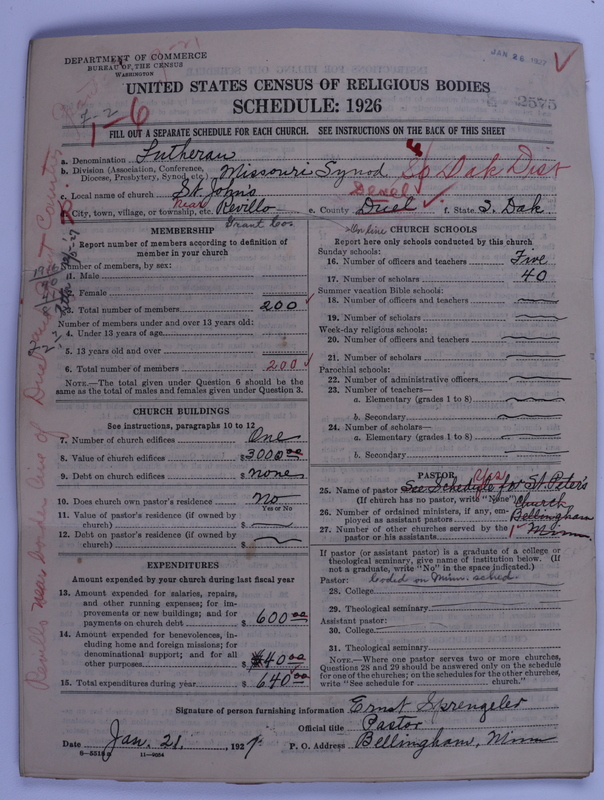 JAN 26 1927
DEPARTMENT OF COMMERCE
BUREAU OF THE CENSUS
WASHINGTON
UNITED STATES CENSUS OF RELIGIOUS BODIES
SCHEDULE: 1926
2575
7-2
1-6
FILL OUT A SEPARATE SCHEDULE FOR EACH CHURCH. SEE INSTRUCTIONS ON THE BACK OF THIS SHEET
a. Denomination Lutheran
4
b. Division (Association, Conference, Diocese, Presbytery, Synod, etc.) Missouri Synod So Dak Dist
c. Local name of church St. John's
Deuel
d. City, town, village, or township, etc. near Revillo e. County Duel f. State S. Dak.
Grant Co.
On line
MEMBERSHIP
Report number of members according to definition of
member in your church
Number of members, by sex:
1. Male
2. Female
3. Total number of members 200
Number of members under and over 13 years old:
4. Under 13 years of age
5. 13 years old and over
6. Total number of members 200
NOTE.—The total given under Question 6 should be the
same as the total of males and females given under Question 3.
CHURCH BUILDINGS
See instructions, paragraphs 10 to 12
7. Number of church edifices One
8. Value of church edifices $3000 00
9. Debt on church edifices $ none
10. Does church own pastor's residence No
Yes or No
11. Value of pastor's residence (if owned by
church) $
12. Debt on pastor's residence (if owned by
church) $
EXPENDITURES
Amount expended by your church during last fiscal year
13. Amount expended for salaries, repairs,
and other running expenses; for im-
provements or new buildings; and for
payments on church debt $ 600 00
14. Amount expended for benevolences, in-
cluding home and foreign missions; for
denominational support; and for all
other purposes $ 40 00
15. Total expenditures during year $ 640 00
CHURCH SCHOOLS
Report here only schools conducted by this church
Sunday schools:
16. Number of officers and teachers Five
17. Number of scholars 40
Summer vacation Bible schools:
18. Number of officers and teachers
19. Number of scholars
Week-day religious schools:
20. Number of officers and teachers
21. Number of scholars
Parochial schools:
22. Number of administrative officers
23. Number of teachers—
a. Elementary (grades 1 to 8)
b. Secondary
24. Number of scholars—
a. Elementary (grades 1 to 8)
b. Secondary
PASTOR
25. Name of pastor See Schedule for St. Peter's
(If church has no pastor, write "None") Church
26. Number of ordained ministers, if any, em-
ployed as assistant pastors Bellingham
27. Number of other churches served by the
pastor or his assistants 1 Minn.
If pastor (or assistant pastor) is a graduate of a college or
theological seminary, give name of institution below. (If
not a graduate, write "No" in the space indicated.)
Pastor: Coded on Minn. sched.
28. College
29. Theological seminary
Assistant pastor:
30. College
31. Theological seminary
NOTE.—Where one pastor serves two or more churches,
Questions 28 and 29 should be answered only on the schedule
for one of the churches; on the schedules for the other churches,
write "See schedule for church."
Signature of person furnishing information Ernst Sprengeler
Official title Pastor
Date Jan. 21, 1927. P. O. Address Bellingham, Minn
8-5518a 11-9554